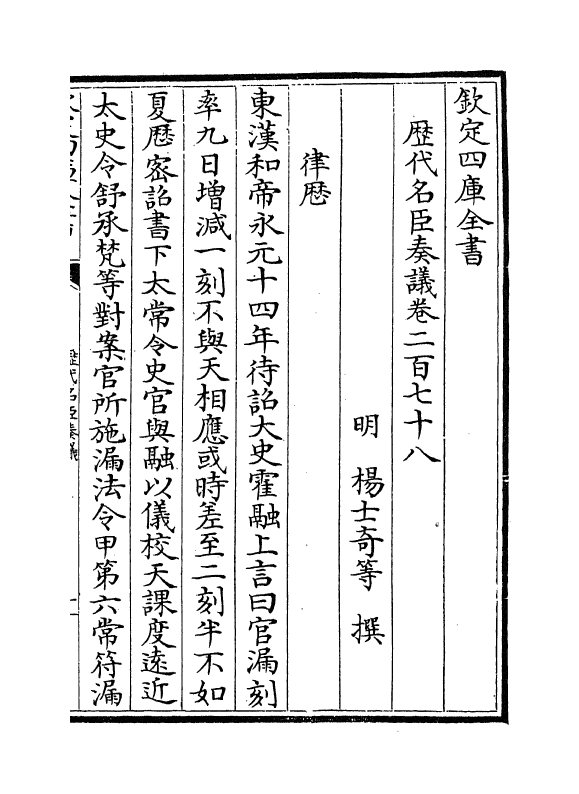 欽定四庫全書
歴代名臣奏議卷二百七十八
明　楊士奇等　撰
律厯
東漢和帝永元十四年待詔大史霍融上言曰官漏刻
率九日增減一刻不與天相應或時差至二刻半不如
夏厯密詔書下太常令史官與融以儀校天課度遠近
太史令舒承梵等對案官所施漏法令甲第六常符漏
歴代名臣奏議